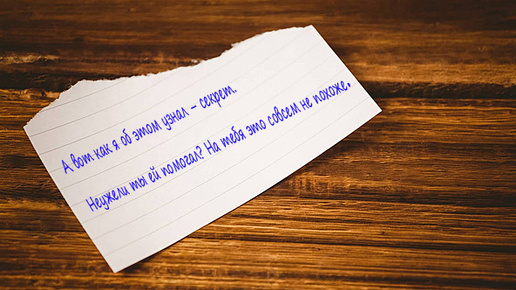 А вот как я об этом узнал – секрет.
Неужели ты ей помогал? На тебя это совсем не похоже.